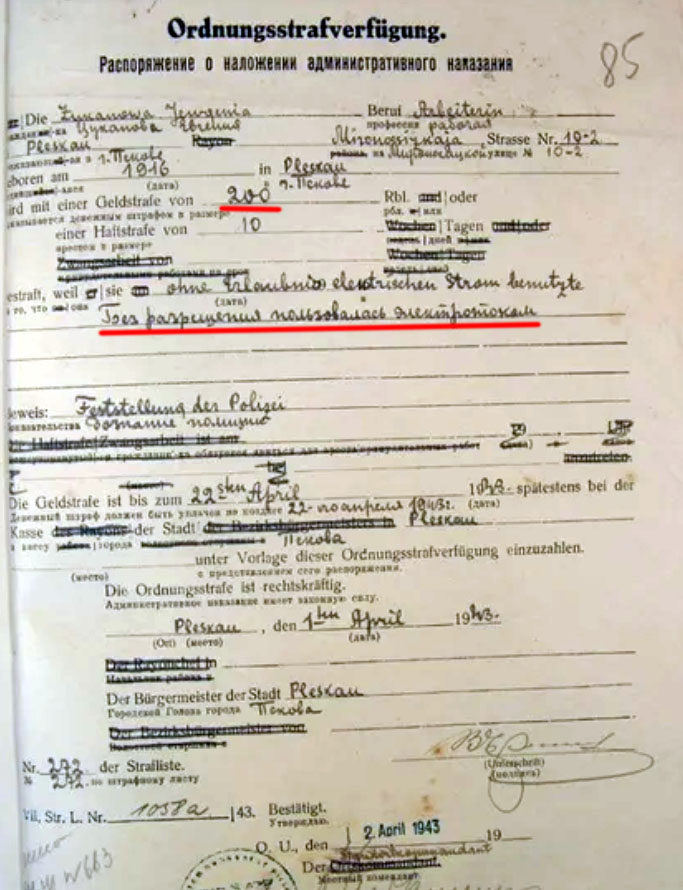 Ordnungsstrafverfügung.
Распоряжение о наложении административного наказания
85
Die Zukanowa Jewgenia Beruf Arbeiterin
Цуканова Евгения профессия рабочая
Pleskau Rayon Mironossizkaja, Strasse Nr. 10-2
в г. Пскове района на Мироносицкой улице № 10-2
boren am 1916 in Pleskau
(дата) г. Пскове
ird mit einer Geldstrafe von 200 Rbl. und|oder
денежным штрафом в размере рбл. и|или
einer Haftstrafe von 10 Wochen|Tagen und|oder
арестом в размере дней
Zwangsarbeit von Wochen|Tagen
estraft, weil er|sie am ohne Erlaubnis elektrischen Strom benutzte
то, что он|она (дата)
Без разрешения пользовалась электротоком
eweis: Feststellung der Polizei
Дознание полиции
Die Haftstrafe|Zwangsarbeit ist am
anzutreten.
bei
Die Geldstrafe ist bis zum 22sten April 1943. spätestens bei der
Денежный штраф должен быть уплачен не позднее 22-го апреля 1943г. (дата)
Kasse des Rayons der Stadt der Bezirksbürgermeisters in Pleskau
в кассу района|города Пскова
unter Vorlage dieser Ordnungsstrafverfügung einzuzahlen.
(место) с представлением сего распоряжения.
Die Ordnungsstrafe ist rechtskräftig.
Административное наказание имеет законную силу.
Pleskau, den 1ten April 1943.
(Ort) (место) (дата)
Der Rayonchef in
Начальник района в
Der Bürgermeister der Stadt Pleskau
Городской Голова города Пскова
Der Bezirksbürgermeister von
Волостной старшина в
(Unterschrift)
(подпись)
Nr. 272 der Strafliste.
№ 272. по штрафному листу
VII, Str. L. Nr. 1058a |43. Bestätigt.
Утверждаю.
O. U., den 12 April 1943 19
Der Ortskommandant.
Местный комендант.